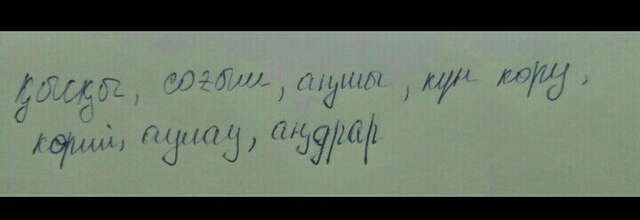 қысқы, соғым, аңшы, күн көру,
көрші, аулау, аңдрар